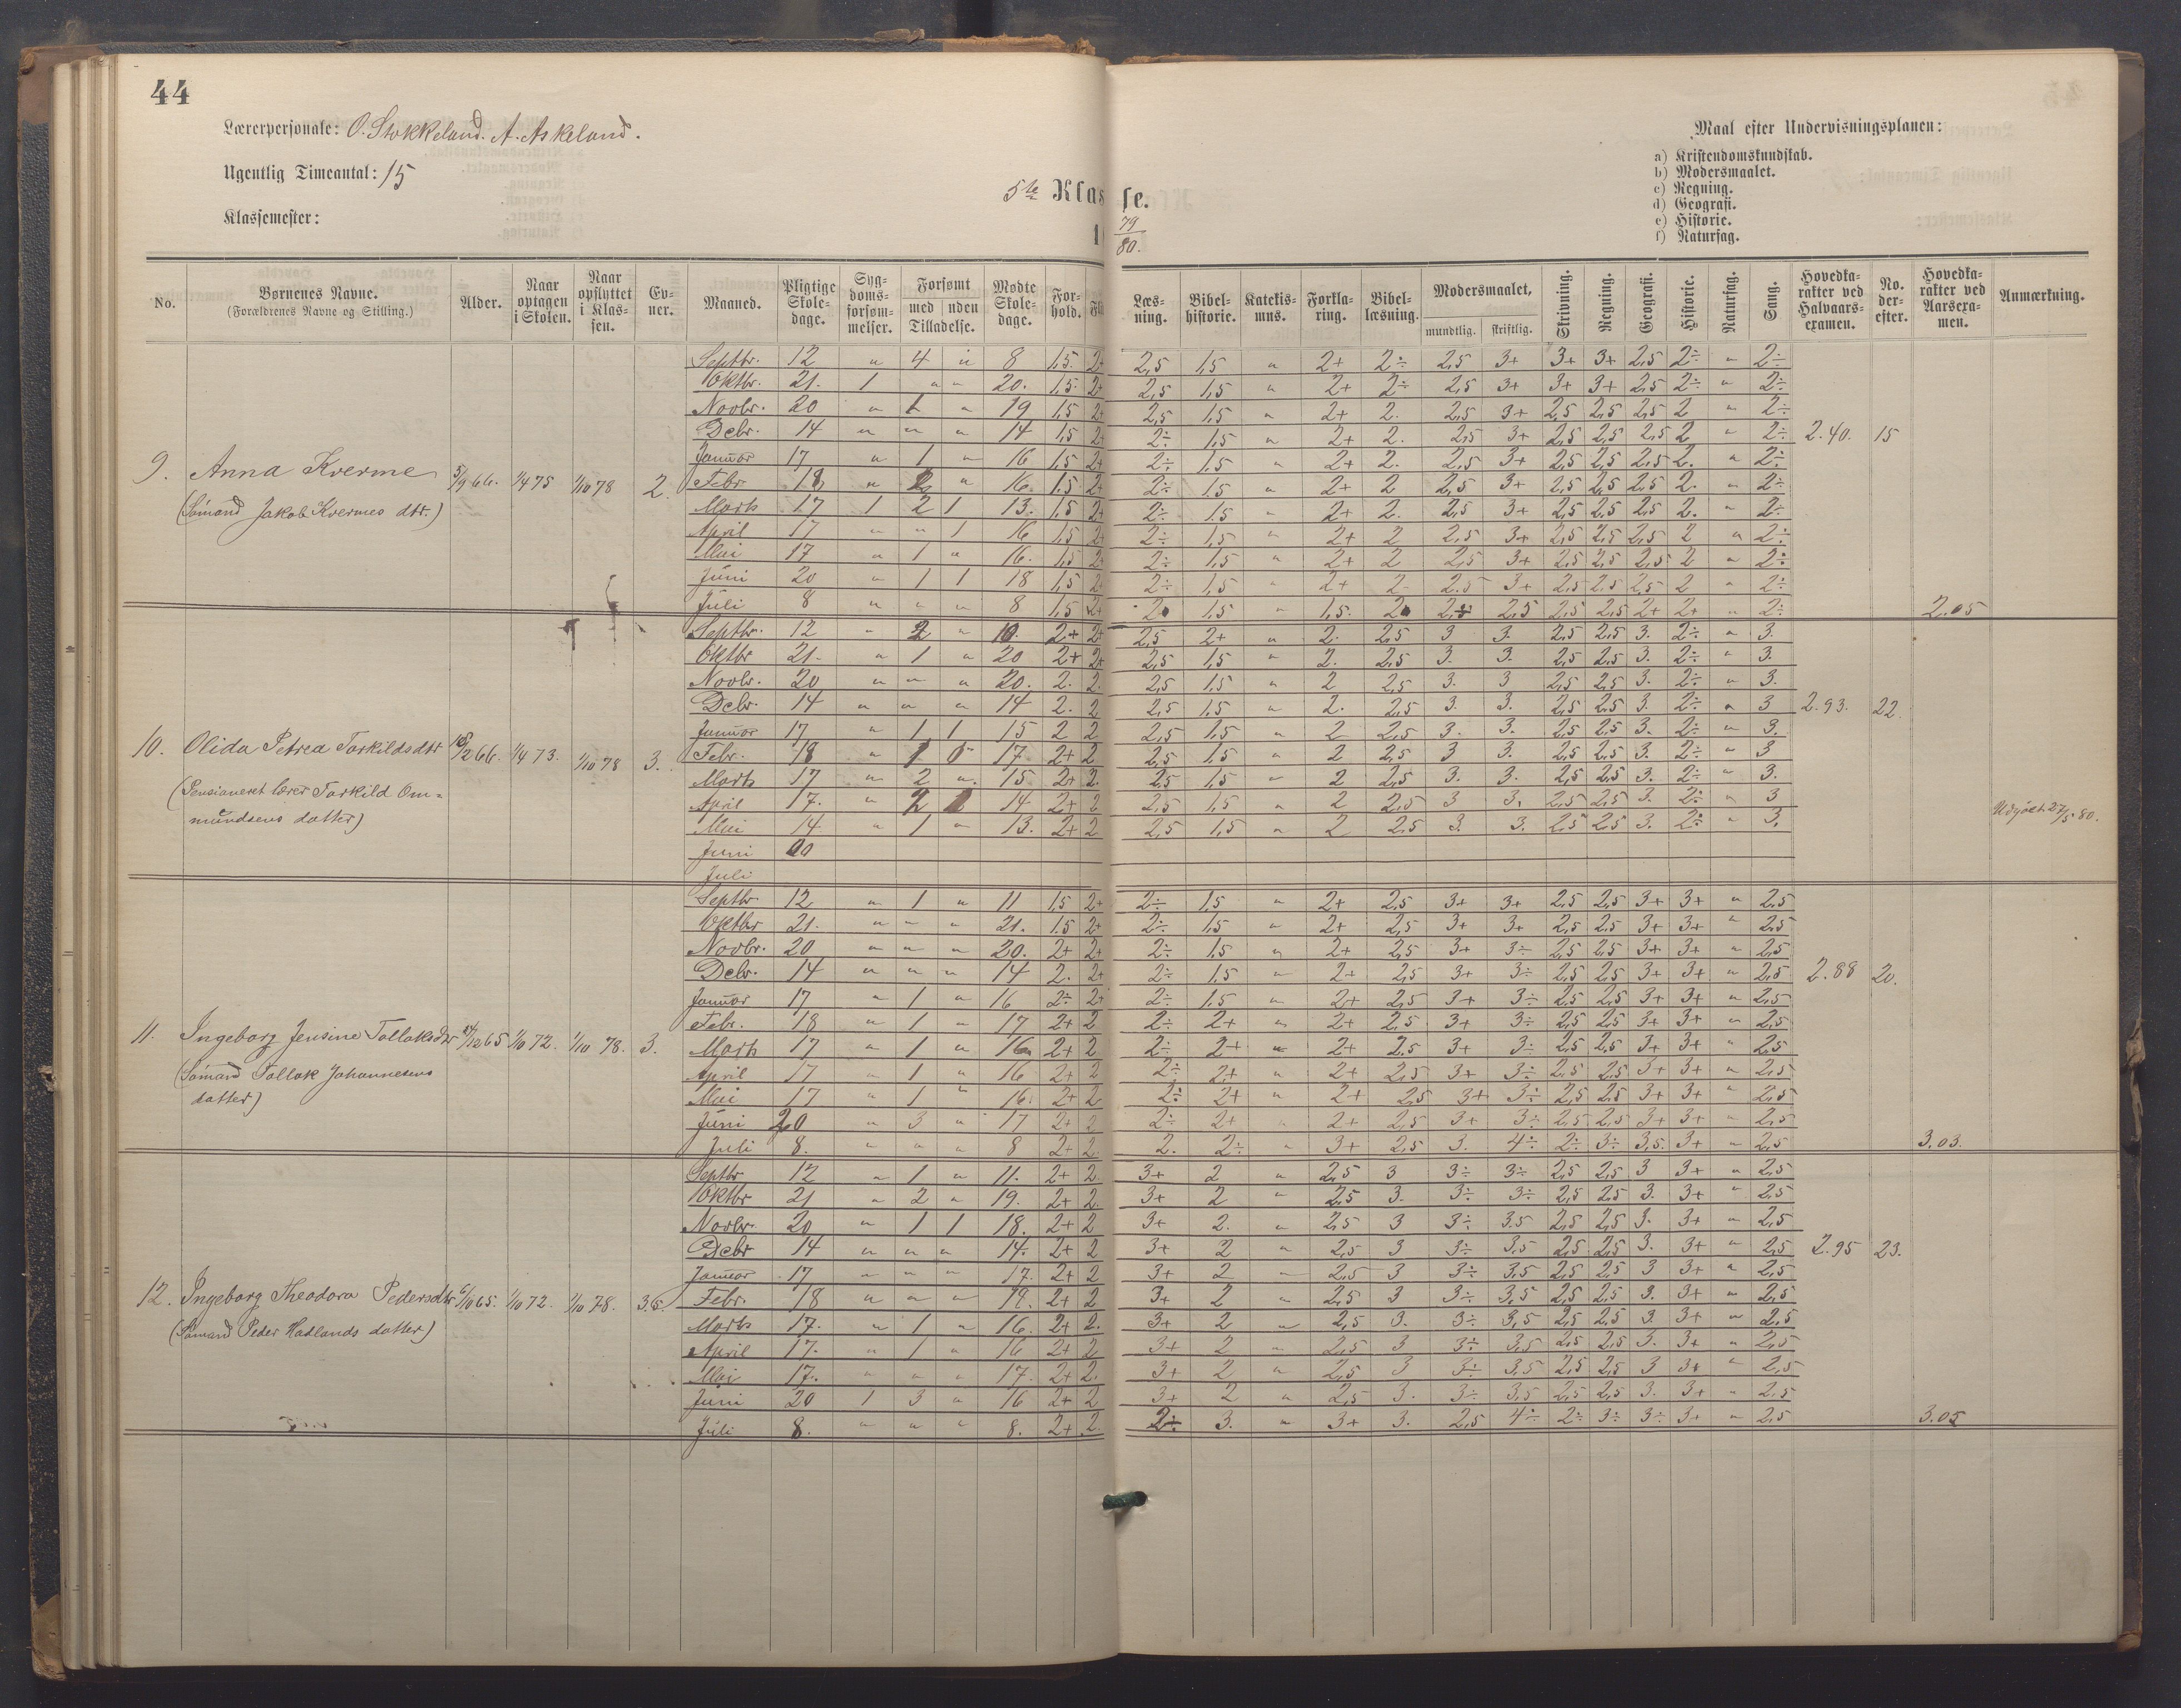 44
Lærerpersonale: O. Stokkeland. A. Askeland.
Ugentlig Timeantal: 15
Klassemester:
5te Klasse.
79
80.
Maal efter Undervisningsplanen:
a) Kristendomskundskab.
b) Modersmaalet.
c) Regning.
d) Geografi.
e) Historie.
f) Naturfag.
No. Børnenes Navne. (Forældrenes Navne og Stilling.) Alder. Naar optagen i Skolen. Naar opflyttet i Klassen. Evner. Maaned. Pligtige Skoledage. Sygdomsforsømmelser. Forsømt med uden Tilladelse. Mødte Skoledage. Forhold. Fl Læsning. Bibelhistorie. Katekismus. Forklaring. Bibellæsning. Modersmaalet, mundtlig. skriftlig. Skrivning. Regning. Geografi. Historie. Naturfag. Sang. Hovedkarakter ved Halvaarsexamen. No. derefter. Hovedkarakter ved Aarsexamen. Anmærkning.
9. Anna Kverme 5/9 66. 1/4 75 1/10 78 2.
(Sømand Jakob Kvermes dtr.)
Septbr. 12 " 4 " 8 1,5 2+ 2,5 1,5 " 2+ 2÷ 2,5 3+ 3+ 3+ 2,5 2÷ " 2÷
Oktbr. 21. 1 " " 20. 1,5 2+ 2,5 1,5 " 2+ 2÷ 2,5 3+ 3+ 3+ 2,5 2÷ " 2÷
Novbr. 20 " 1 " 19 1,5 2+ 2,5 1,5 " 2+ 2. 2,5 3+ 2,5 2,5 2,5 2 " 2÷
Debr. 14 " " " 14 1,5 2+ 2÷ 1,5 " 2+ 2. 2,5 3+ 2,5 2,5 2,5 2 " 2÷ 2.40. 15
Januar 17 " 1 " 16 1,5 2+ 2÷ 1,5 " 2+ 2. 2,5 3+ 2,5 2,5 2,5 2. " 2÷
Febr. 18 " 2 " 16 1,5 2+ 2÷ 1,5 " 2+ 2 2,5 3+ 2,5 2,5 2,5 2. " 2÷
Marts 17 1 2 1 13. 1,5 2+ 2÷ 1,5 " 2+ 2. 2,5 3+ 2,5 2,5 2,5 2. " 2÷
April 17 " " 1 16 1,5 2+ 2÷ 1,5 " 2+ 2 2,5 3+ 2,5 2,5 2,5 2 " 2÷
Mai 17 " 1 " 16. 1,5 2+ 2÷ 1,5 " 2+ 2 2,5 3+ 2,5 2,5 2,5 2 " 2÷
Juni 20 " 1 1 18 1,5 2+ 2÷ 1,5 " 2+ 2 2,5 3+ 2,5 2,5 2,5 2 " 2÷
Juli 8 " " " 8 1,5 2+ 2 1,5 " 1,5. 2 2,5 2,5 2,5 2+ 2+ " 2÷ 2.05
10. Olida Petrea Torkildsdtr 2 66. 1/4 73. 1/10 78 3.
(Pensioneret lærer Torkild Ommundsens datter)
Septbr. 12 " 2 " 10. 2+ 2+ 2,5 2+ " 2. 2,5 3 3. 2,5 2,5 3. 2÷ " 3.
Oktbr 21. " 1 " 20 2+ 2+ 2,5 1,5 " 2. 2,5 3. 3. 2,5 2,5 3. 2÷ " 3.
Novbr. 20 " " " 20. 2. 2. 2,5 1,5 " 2 2,5 3. 3 2,5 2,5 3. 2÷ " 3.
Debr. 14 " " " 14 2. 2 2,5 1,5 " 2. 2,5 3. 3. 2,5 2,5 3. 2÷ " 3 2.93. 22.
Januar 17 " 1 1 15 2 2 2,5 1,5 " 2 2,5 3. 3. 2,5 2,5 3. 2÷ " 3.
Febr. 18 " 1 17. 2+ 2 2,5 1,5 " 2 2,5 3 3. 2,5 2,5 3. 2÷ " 3
Marts 17 " 2 " 15 2+ 2. 2,5 1,5 " 2 2,5 3. 3. 2,5 2,5 3. 2÷ " 3.
April 17. " 2 1 14 2+ 2 2,5 1,5 " 2 2,5 3 3. 2,5 2,5 3. 2÷ " 3
Mai 14 " 1 " 13. 2+ 2 2,5 1,5 " 2 2,5 3. 3. 2,5 2,5 3. 2÷ " 3. 27/5 80.
Juni
Juli
11. Ingeborg Jensine Tollaksdtr 12 65 1/10 72. 1/10 78. 3.
(Sømand Tollak Johannesens datter)
Septbr 12 " 1 " 11 1,5 2+ 2÷ 1,5 " 2+ 2,5 3+ 3+ 2,5 2,5 3+ 3+ " 2,5
Oktbr 21. " " " 21. 1.5 2+ 2÷ 1,5 " 2+ 2,5 3+ 3+ 2,5 2,5 3+ 3+ " 2,5
Novbr. 20 " " " 20. 2+ 2+ 2÷ 1,5 " 2+ 2,5 3+ 3÷ 2,5 2,5 3+ 3+ " 2,5
Debr. 14 " " " 14 2. 2+ 2÷ 1,5 " 2+ 2,5 3+ 3÷ 2,5 2,5 3+ 3+ " 2,5 2.88 20.
Januar 17 " 1 " 16 2÷ 2+ 2÷ 1,5 " 2+ 2,5 3+ 3÷ 2,5 2,5 3+ 3+ " 2,5
Febr. 18 " 1 " 17 2+ 2 2÷ 2+ " 2+ 2,5 3+ 3÷ 2,5 2,5 3+ 3+ " 2,5
Marts 17 " 1 " 16 2+ 2 2÷ 2+ " 2+ 2.5 3+ 3÷ 2,5 2,5 3+ 3+ " 2,5
April 17 " 1 " 16 2+ 2 2÷ 2+ " 2+ 2,5 3+ 3÷ 2,5 2,5 3+ 3+ " 2,5
Mai 17 " 1 " 16. 2+ 2 2÷ 2+ " 2+ 2,5 3+ 3÷ 2,5 2,5 3+ 3+ " 2,5
Juni 20 " 3 " 17 2+ 2 2÷ 2+ " 2+ 2,5 3+ 3÷ 2,5 2,5 3+ 3+ " 2,5
Juli 8. " " " 8 2+ 2. 2. 2÷ " 3+ 2,5 3. 4÷ 2÷ 3÷ 3,5 3+ " 2,5 3.03.
12. Ingeborg Theodora Pedersdtr 6/10 65. 1/10 72. 1/10 78. 3.5.
(Sømand Peder Hadlands datter)
Septbr 12 " 1 " 11. 2+ 2. 3+ 2 " 2,5 3 3÷ 3÷ 2,5 2,5 3 3+ " 2,5
Oktbr 21 " 2 " 19. 2+ 2. 3+ 2 " 2,5 3. 3÷ 3÷ 2,5 2,5 3. 3+ " 2,5
Novbr. 20 " 1 1 18. 2+ 2 3+ 2. " 2,5 3 3÷ 3.5 2,5 2,5 3. 3+ " 2,5
Debr 14 " " " 14. 2+ 2 3+ 2 " 2,5 3 3÷ 3,5 2,5 2,5 3. 3+ " 2,5 2.95 23.
Januar 17 " " " 17. 2+ 2 3+ 2 " 2,5 3 3÷ 3,5 2,5 2,5 3 3+ " 2,5
Febr. 18 " " " 18. 2+ 2 3+ 2 " 2,5 3 3÷ 3,5 2,5 2,5 3. 3+ " 2,5
Marts 17. " 1 " 16. 2+ 2. 3+ 2 " 2,5 3. 3÷ 3,5 2,5 2,5 3. 3+ " 2,5
April 17. " 1 " 16 2+ 2 3+ 2 " 2,5 3 3÷ 3,5 2,5 2,5 3. 3+ " 2,5
Mai 17. " " " 17. 2+ 2. 3+ 2 " 2,5 3 3÷ 3,5 2,5 2,5 3 3+ " 2,5
Juni 20 1 3 " 16 2+ 2 3+ 2 " 2,5 3. 3÷ 3,5 2,5 2,5 3. 3+ " 2,5
Juli 8. " " " 8. 2+ 2. 2÷ 3. " 3+ 3. 2,5 4÷ 2÷ 3÷ 3÷ 3+ " 2,5 3.05